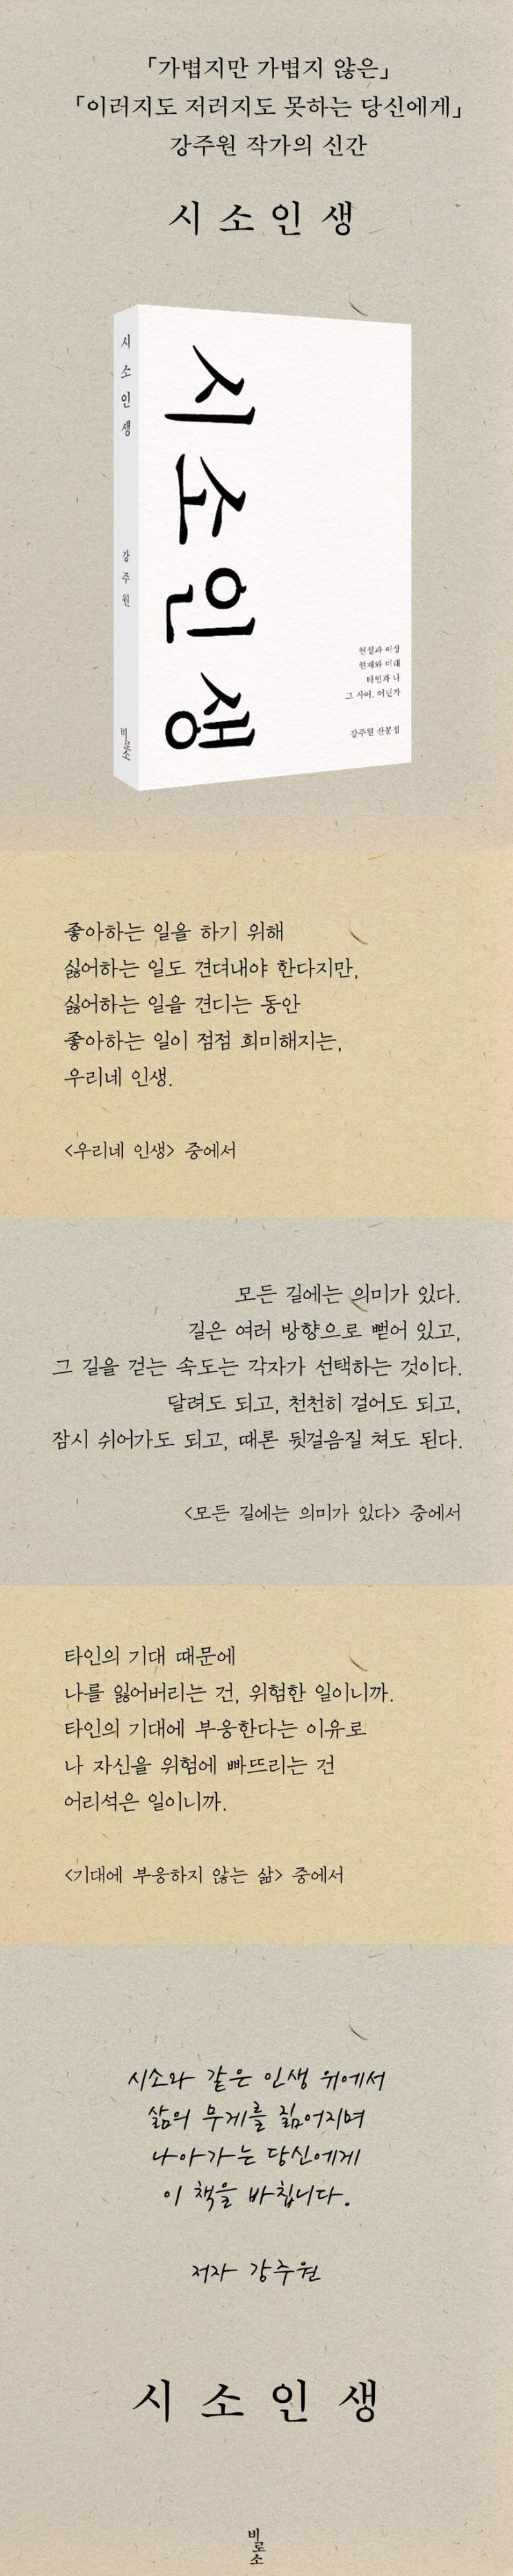 「가볍지만 가볍지 않은」
「이러지도 저러지도 못하는 당신에게」
강주원 작가의 신간
시소인생
시소인생
강주원
비로소
시소인생
현실과 이상
현재와 미래
타인과 나
그 사이, 어딘가
강주원 산문집
좋아하는 일을 하기 위해
싫어하는 일도 견뎌내야 한다지만,
싫어하는 일을 견디는 동안
좋아하는 일이 점점 희미해지는,
우리네 인생.
<우리네 인생> 중에서
모든 길에는 의미가 있다.
길은 여러 방향으로 뻗어 있고,
그 길을 걷는 속도는 각자가 선택하는 것이다.
달려도 되고, 천천히 걸어도 되고,
잠시 쉬어가도 되고, 때론 뒷걸음질 쳐도 된다.
<모든 길에는 의미가 있다> 중에서
타인의 기대 때문에
나를 잃어버리는 건, 위험한 일이니까.
타인의 기대에 부응한다는 이유로
나 자신을 위험에 빠뜨리는 건
어리석은 일이니까.
<기대에 부응하지 않는 삶> 중에서
시소와 같은 인생 위에서
삶의 무게를 짊어지며
나아가는 당신에게
이 책을 바칩니다.
저자 강주원
시소인생
비로소